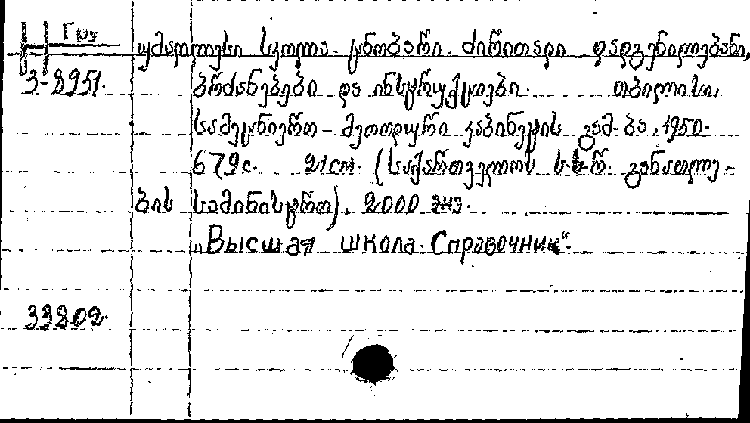 Гру უმაღლესი სკოლა. ცნობარი. ძირითადი დადგენილებანი,
3-8951. ბრძანებები და ინსტრუქციები. თბილისი,
სამეცნიერო-მეთოდური კაბინეტის გამ-ბა, 1950.
679с. 21см. (საქართველოს სსრ. განათლე-
ბის სამინისტრო). 2000 экз.
„Высшая школа. Справочник“.
33202